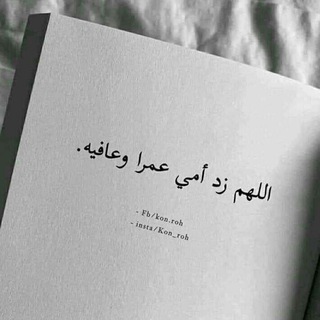 اللهم زد أمي عمرا وعافيه.
- Fb/kon.roh
- insta/Kon_roh